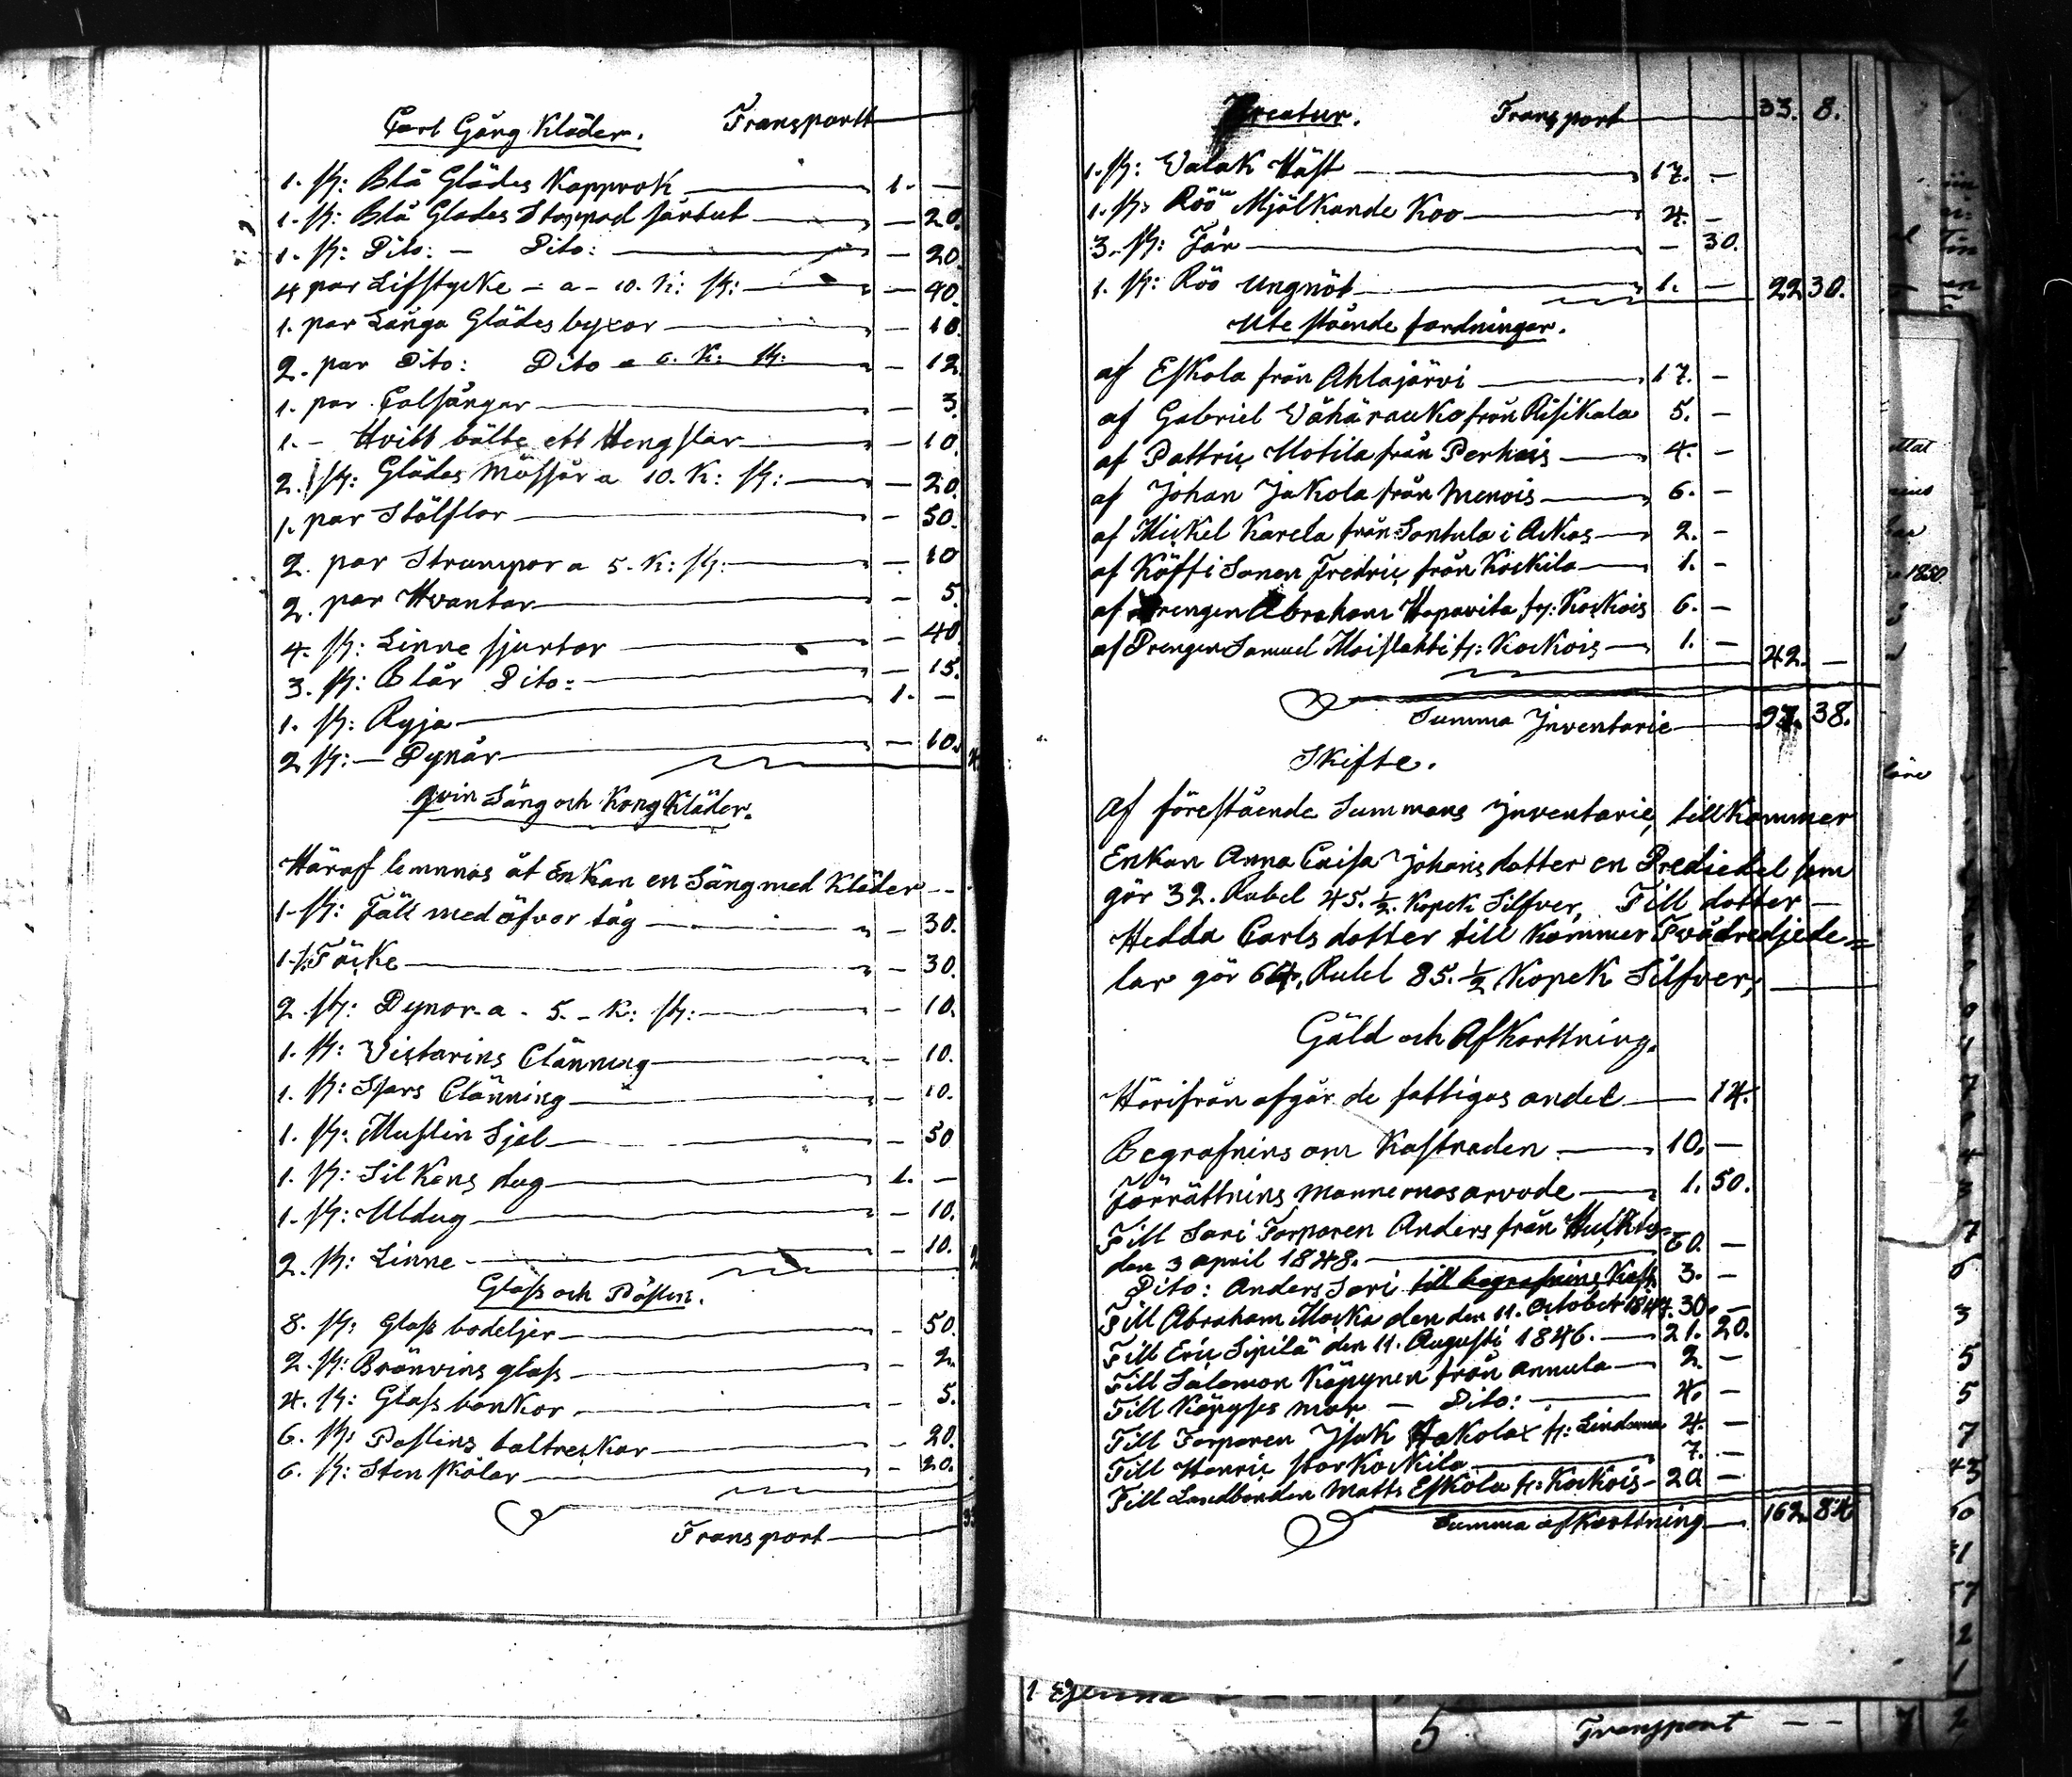 Carl Gång Kläder. Transportt
1. st: Blå Glädes Kapprok 1. —
1. st: Blå Glades Stoppad sårtut — 20.
1. st: Dito: — Dito: — 20.
4 par Lifstycke — a — 10. K: st: — 40.
1. par Långa Glädes byxor — 10.
2. par Dito: Dito a 6. K: st: — 12.
1. par Calsångar — 3.
1. — Hvitt bälte ett Hengslar — 10.
2. st: Glädes Mössår a 10. K: st: — 20.
1. par Stölflar — 50.
2. par Strumpor a 5. K: st: — 10
2. par Hvantar — 5.
4. st: Linne sjurtor — 40
3. st: Blår Dito: — 15.
1. st: Ryja 1. —
2 st: — Dynår — 10.
qvin Säng och Kång Kläder.
Häraf lemnnas åt Enkan en Säng med Kläder
1- st: Fäll med öfvar tåg — 30.
1- st: Täcke — 30.
2. st: Dynor. a. 5. — K: st: — 10.
1. st: Vistarins Clänning — 10.
1. st: Sjars Clänning — 10.
1. st: Muslin Sjal — 50
1. st: Silkens dug 1. —
1. st: Uldug — 10.
2. st: Linne — 10.
Glass och Påslins.
8. st: Glass bodeljer — 50.
2. st: Brånvins glass — 2.
4. st: Glass bonkor — 5.
6. st: Paslins baltreskar — 20.
6. st: Sten skålar — 20.
Transport
Kreatur. Transport 33. 8.
1. st: Valak Häst 17. —
1. st: Röö Mjölkande Koo 4. —
3. st: Får — 30.
1. st: Röö Ungnöt 1. — 22 30.
Ute stående fordningar.
af Eskola från Ahlajärvi 17. —
af Gabriel Vähärauko från Risikala 5. —
af Pattric Motila från Perhais 4. —
af Johan Jakola från Menois 6. —
af Mickel Karela från Sontula i Ackas 2. —
af Köffi Sonen Fredric från Kockila 1. —
af Drengen Abraham Hapavita fr: Kockois 6. —
af Drengen Samuel Maislahti fr: Kockois 1. — 42. —
Summa Jnventarie 97. 38.
Skifte.
Af förestående Summans Jnventarie, till Kommer
Enkan Anna Caisa Johans dotter en Trediedel som
gör 32. Rubel 45. ½. Kopek Silfver, Till dotter —
Hedda Carls dotter till Kommer Två dredjede=
lar gör 64. Rubel 85. ½ Kopek Silfver,
Gäld och Afkorttning.
Härifrån afgår de fattigas andel — 14.
Begrafnins om Kastnaden 10. —
Förrättnins Mannernas arvode 1. 50.
Till Sari Torparen Anders från
den 3 april 1848. 60. —
Dito: Anders Sari till begrafnins Kast 3. —
Till Abraham Mocka den den 11. October 1847. 30. —
Till Eric Sipilä den 11. Augusti 1846. 21. 20.
Till Salomon Köpynen från Annula 2 —
Till Köpyses mor — Dito: 4. —
Till Torparen Jsak Hakola fr: Lindoma 4. —
Till Henric storkockila 7. —
Till Landbonden Matts Eskola fr: Kockois 20 —
Summa afkorttning 162. 84
1
5 Transport — —